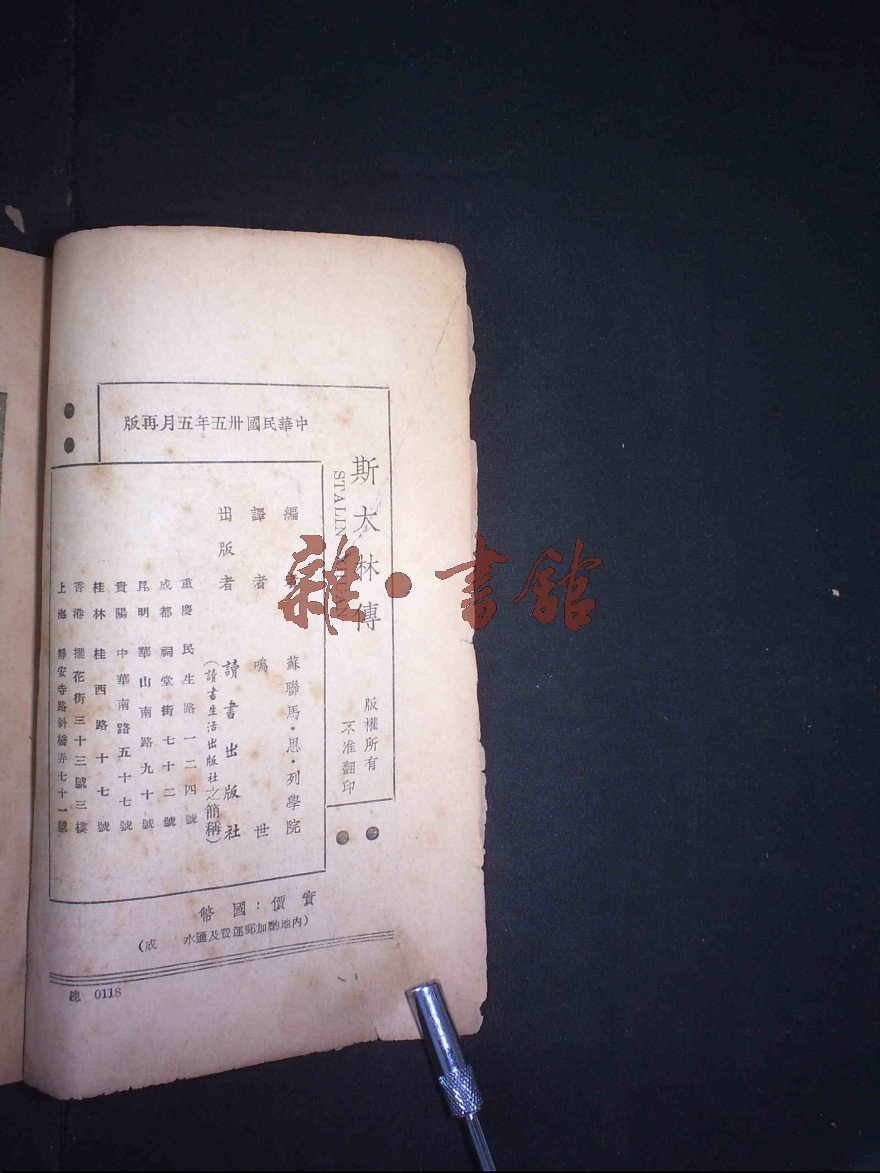 中華民國卅五年五月再版
斯大林傳
STALIN
版權所有
不准翻印
編 蘇聯馬·恩·列學院
譯者 鳴世
出版者 讀書出版社
(讀書生活出版社之簡稱)
重慶 民生路一二四號
成都 祠堂街七十二號
昆明 華山南路九十號
貴陽 中華南路五十七號
桂林 桂西路十七號
香港 擺花街三十三號三樓
上海 靜安寺路斜橋弄七十一號
實價:國幣
(內地酌加郵運費及匯水 成)
總 0118
雜·書館